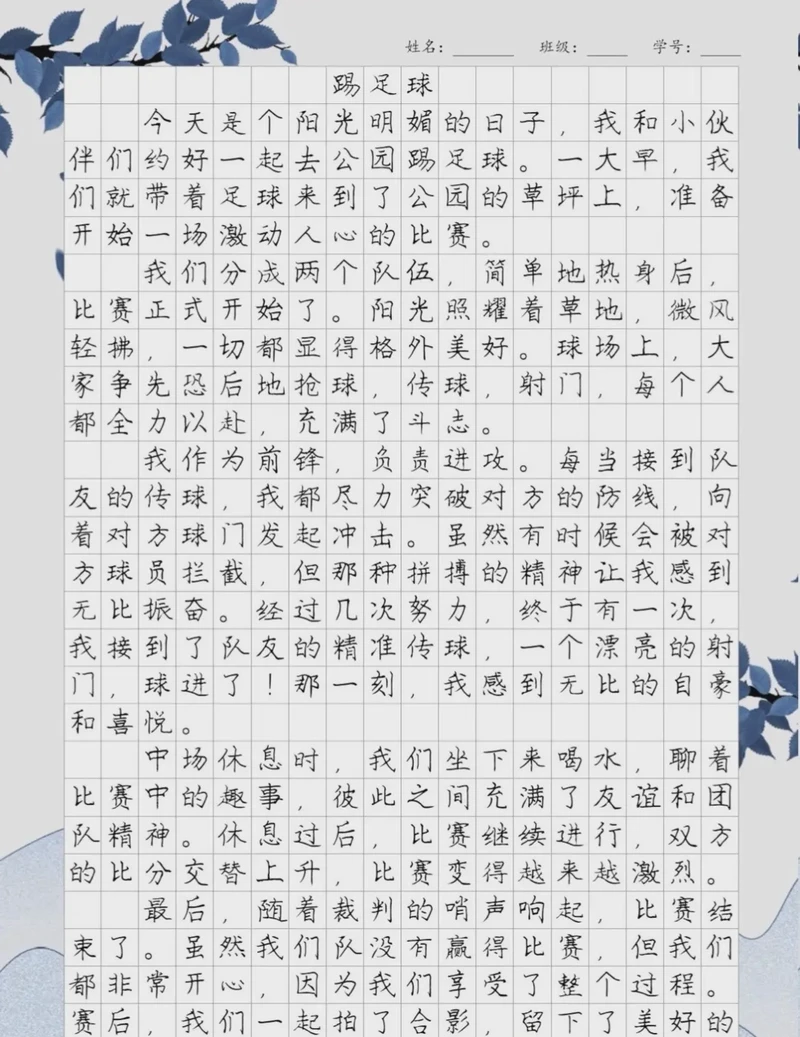 姓名：______ 班级：____ 学号：____
踢足球
今天是个阳光明媚的日子，我和小伙
伴们约好一起去公园踢足球。一大早，我
们就带着足球来到了公园的草坪上，准备
开始一场激动人心的比赛。
我们分成两个队伍，简单地热身后，
比赛正式开始了。阳光照耀着草地，微风
轻拂，一切都显得格外美好。球场上，大
家争先恐后地抢球，传球，射门，每个人
都全力以赴，充满了斗志。
我作为前锋，负责进攻。每当接到队
友的传球，我都尽力突破对方的防线，向
着对方球门发起冲击。虽然有时候会被对
方球员拦截，但那种拼搏的精神让我感到
无比振奋。经过几次努力，终于有一次，
我接到了队友的精准传球，一个漂亮的射
门，球进了！那一刻，我感到无比的自豪
和喜悦。
中场休息时，我们坐下来喝水，聊着
比赛中的趣事，彼此之间充满了友谊和团
队精神。休息过后，比赛继续进行，双方
的比分交替上升，比赛变得越来越激烈。
最后，随着裁判的哨声响起，比赛结
束了。虽然我们队没有赢得比赛，但我们
都非常开心，因为我们享受了整个过程。
赛后，我们一起拍了合影，留下了美好的